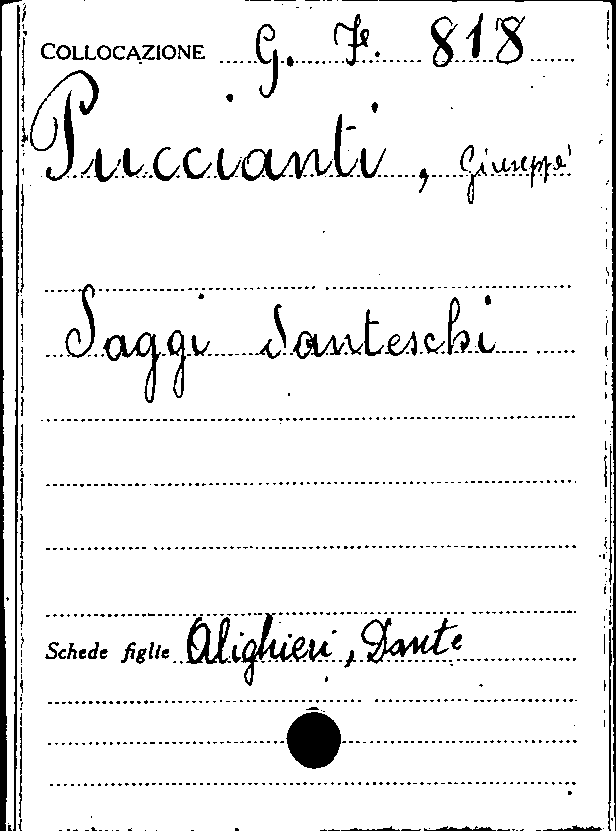 COLLOCAZIONE G. F. 818
Puccianti, Giuseppe
Saggi danteschi
Schede figlie Alighieri, Dante